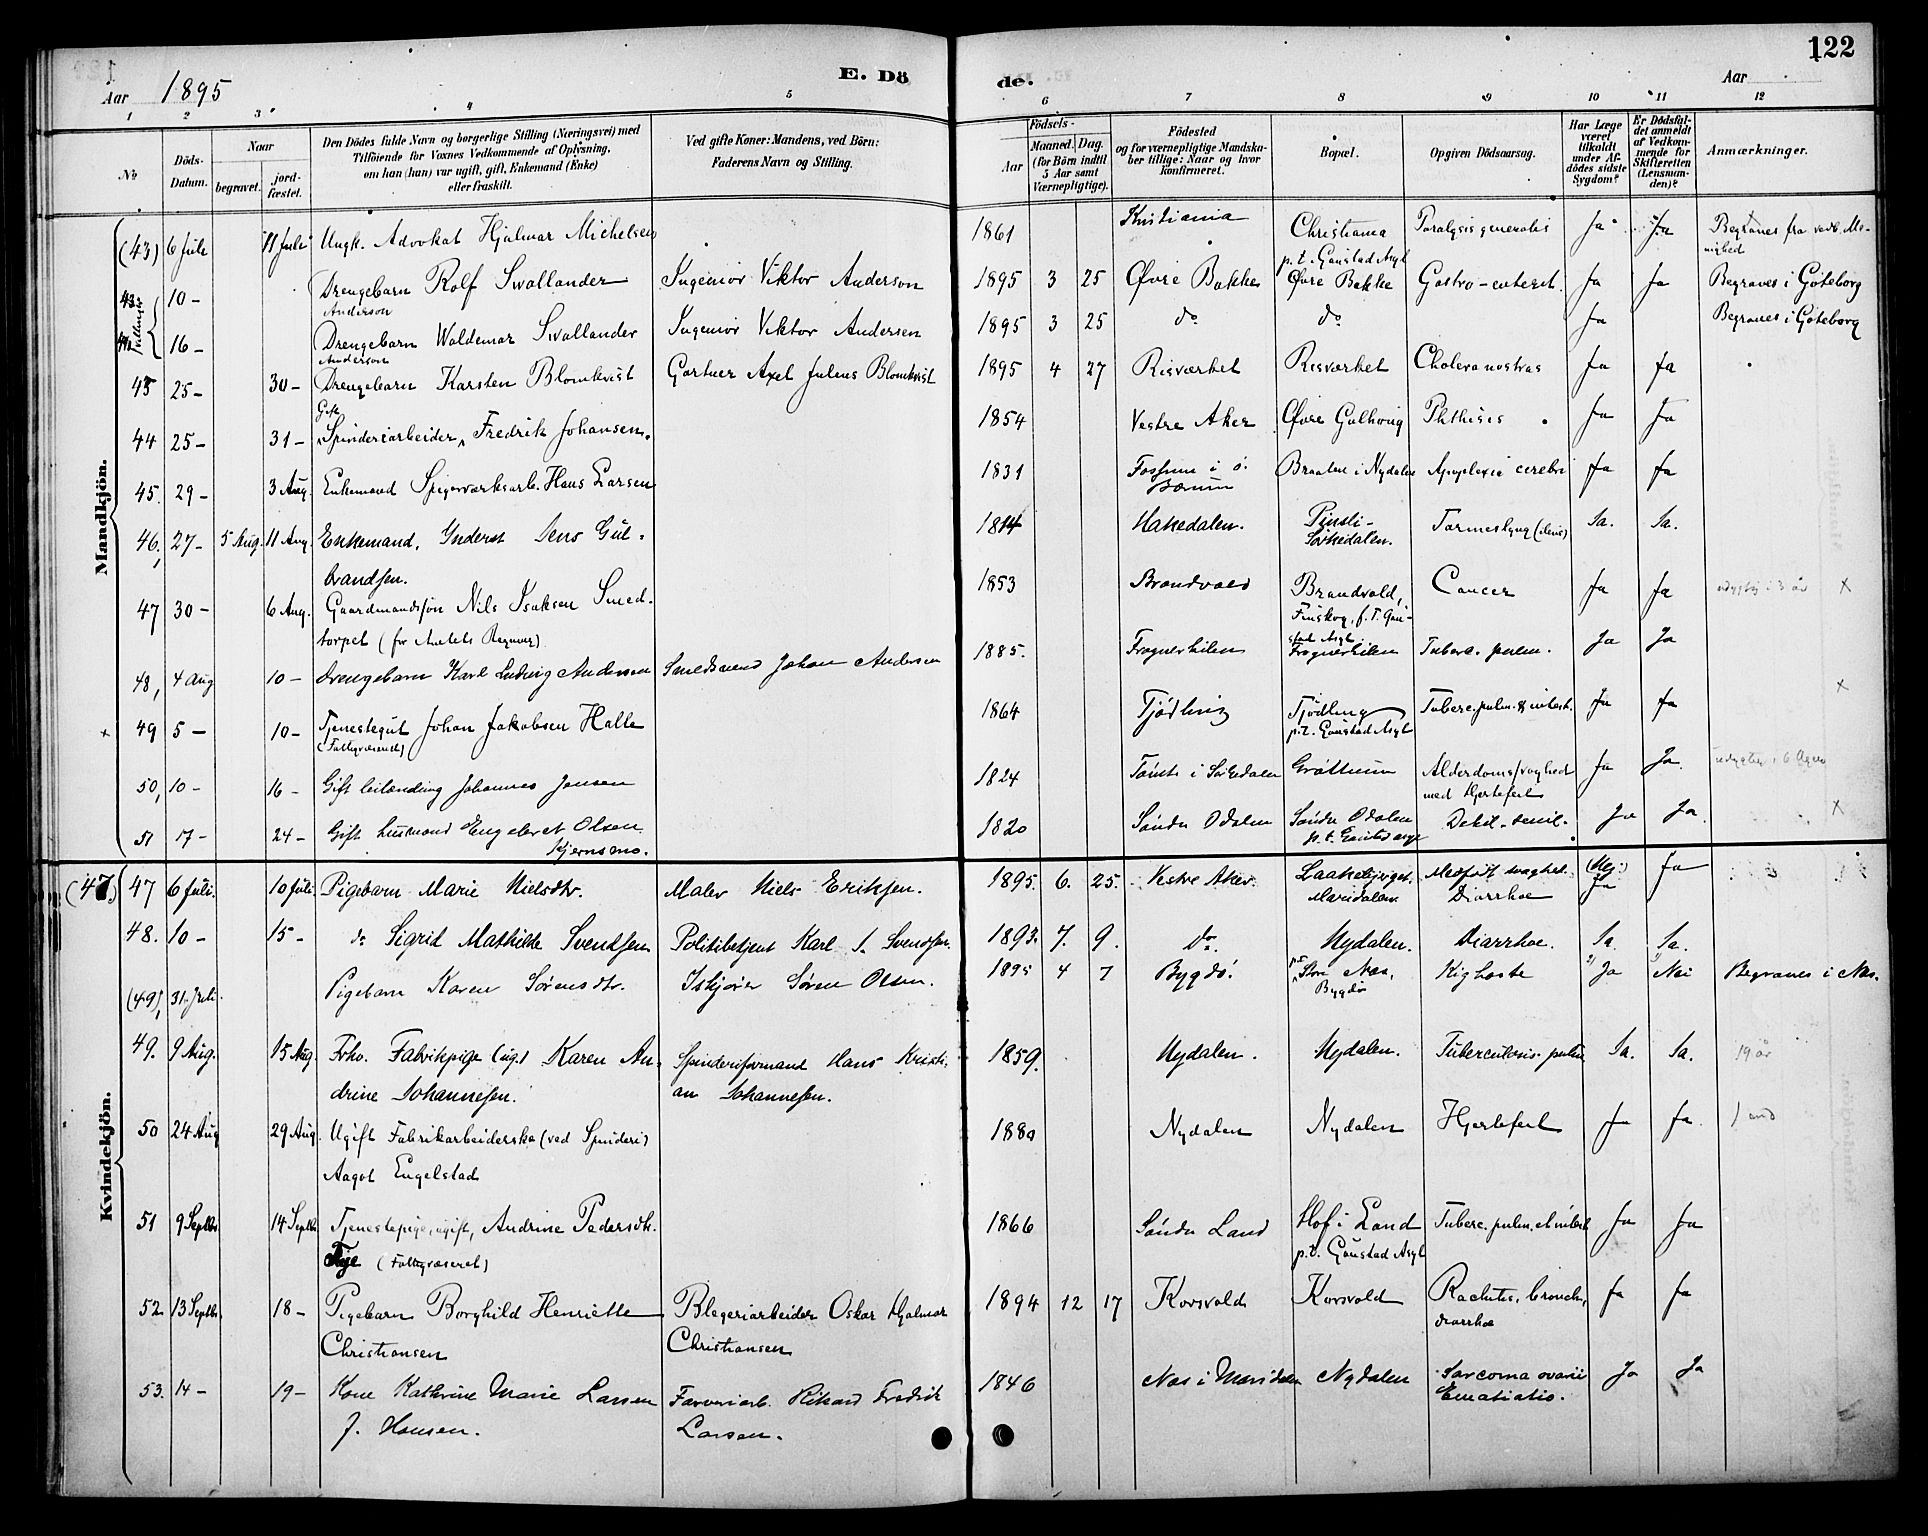 122
Aar 1895
E. Dö
de.
Aar
1 2 3 4 5 6 7 8 9 10 11 12
No
Döds-Datum.
Naar
begravet.
jord-fæstet.
Den Dödes fulde Navn og borgerlige Stilling (Næringsvei) med
Tilföiende for Voxnes Vedkommende af Oplysning,
om han (hun) var ugift, gift, Enkemand (Enke)
eller fraskilt.
Ved gifte Koner: Mandens, ved Börn:
Faderens Navn og Stilling.
Födsels-
Aar
Maaned. Dag.
(for Börn indtil
5 Aar samt
Værnepligtige).
Födested
og for værnepligtige Mandska-
ber tillige: Naar og hvor
konfirmeret.
Bopæl.
Opgiven Dödsaarsag.
Har Læge
været
tilkaldt
under Af-
dödes sidste
Sygdom?
Er Dödsfal-
det anmeldt
af Vedkom-
mende for
Skifteretten
(Lensman-
den)?
Anmærkninger.
Mandkjön.
(43) 6 Juli 11 Juli Ungk. Advokat Hjalmar Michelsen 1861 Kristiania Christiania Paralysis generalis Ja Ja Begraves fra vedk. Me-
p.t. Gaustad Asyl nighed
10 - Drengebarn Rolf Swallander Ingeniør Viktor Anderson 1895 3 25 Øvre Bakke Øvre Bakke Gastro-enterit. Ja Ja Begraves i Göteborg
Anderson
Tvillinger
16 - Drengebarn Waldemar Swallander Ingeniør Viktor Andersen 1895 3 25 do do Ja Begraves i Göteborg
Anderson
43 25 - 30 - Drengebarn Karsten Blomkvist Gartner Axel Julius Blomkvist 1895 4 27 Risværket Risværket Cholera nostras Ja Ja
Gift
44 25 - 31 - Spinderiarbeider, Fredrik Johansen. 1854 Vestre Aker Øvre Guldhoug Phthisis Ja Ja
45. 29 - 3 Aug. Enkemand Spigerværksarb. Hans Larsen 1831 Fossum i ø. Braaten i Nydalen Apoplexia cerebri Ja Ja
Bærum
46, 27 - 5 Aug. 11 Aug. Enkemand, Inderst Jens Gul- 1814 Hakedalen. Pinsli- Tarmeslyng (ileus) Ja. Ja.
brandsen. Sørkedalen.
47 30 - 6 Aug. Gaardmandsøn Nils Isaksen Smed- 1853 Brandvold Brandvold, Cancer Ja Ja
torpet (for Amtets Regning) Finskog, p.t. Gau-
stad Asyl
48, 4 Aug 10 - Drengebarn Karl Ludvig Andersen Smedsvend Johan Andersen 1885. Frognerkilen Frognerkilen Tuberc. pulm. Ja Ja
49 5 - 10 - Tjenestegut Johan Jakobsen Halle 1864 Tjødling Tjødling Tuberc. pulm. & intest. Ja Ja
(Fattigvæsenet) p.t. Gaustad Asyl
50, 10 - 16 - Gift leilænding Johannes Jensen 1824 Tomte i Sørkedalen Grøttum Alderdomssvaghed Ja Ja
med Hjertefeil
51 17 - 24 - Gift husmand Engebret Olsen 1820 Søndre Odalen Søndre Odalen Debil. senil. Ja Ja.
Kjernsmo. p.t. Gaustad asyl
Kvindekjön.
(47.) 47 6 Juli. 10 Juli. Pigebarn Marie Nielsdtr. Maler Niels Eriksen. 1895. 6. 25. Vestre Aker. Laakebjerget. Medfødt svaghet. (Nej.) Ja
Maridalen. Diarrhoe Ja
48. 10 - 15 - do Sigrid Mathilde Svendsen Politibetjent Karl J. Svendsen. 1893. 7. 9. do. Nydalen. Diarrhoe. Ja. Ja.
(49), 31. Juli. Pigebarn Karen Sørensdtr. Iskjører Søren Olsen. 1895 4 7 Bygdø. p.t. Store Næs, Kighoste Ja Nei Begraves i Næs.
Bygdø
49. 9 Aug. 15 Aug. Fhv. Fabrikpige (ug.) Karen An- Spinderiformand Hans Kristi- 1859. Nydalen. Nydalen. Tuberculosis pulm Ja. Ja. 19 år
drine Johannesen. an Johannesen.
50 24 Aug 29 Aug. Ugift Fabrikarbeiderske (ved Spinderi) 1880 Nydalen Nydalen Hjertefeil Ja Ja.
Aagot Engelstad
51 9 Septbr 14 Septbr Tjenestepige, ugift, Andrine Pedersdtr. 1866 Søndre Land Hof i Land Tuberc. pulm. et intest Ja Ja
(Fattigvæsenet) p.t. Gaustad Asyl
52. 13 Septbr. 18 - Pigebarn Borghild Henriette Blegeriarbeider Oskar Hjalmar 1894 12 17 Korsvold Korsvold Rachitis, bronch., Ja Ja
Christiansen Christiansen diarrhoe
53. 14 - 19 - Kone Kathrine Marie Larsen Farveriarb. Rikard Fredrik 1846 Næs i Maridalen Nydalen Sarcoma ovarii Ja Ja
f. Hansen. Larsen. Ematiatio.